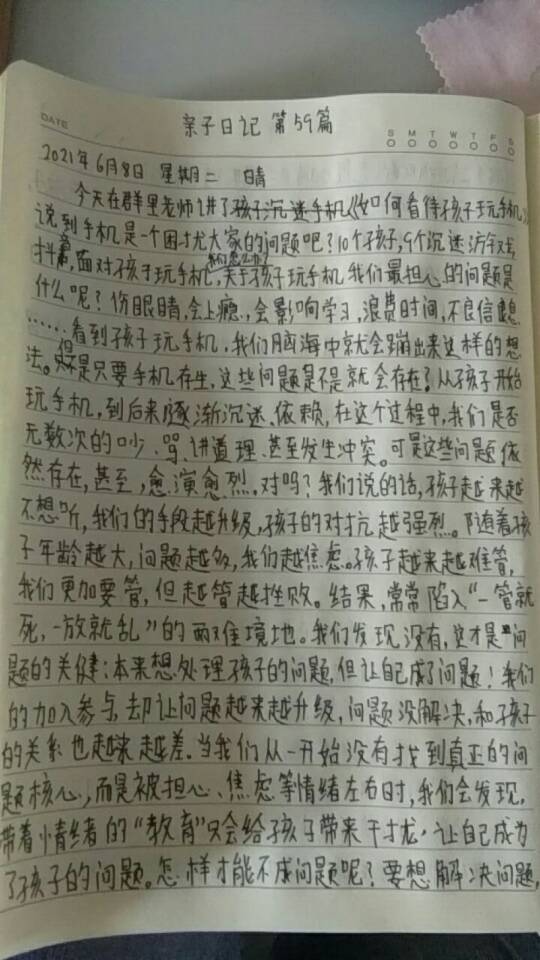 DATE
亲子日记 第59篇
S M T W T F S
2021年6月8日 星期二 晴
今天在群里老师讲了孩子沉迷手机《如何看待孩子玩手机》
说到手机是一个困扰大家的问题吧？10个孩子，9个沉迷游戏
抖音，面对孩子玩手机，我们怎么办？关于孩子玩手机我们最担心的问题是
什么呢？伤眼睛，会上瘾，会影响学习，浪费时间，不良信息
……看到孩子玩手机，我们脑海中就会蹦出来这样的想
法。但是只要手机存在，这些问题是不是就会存在？从孩子开始
玩手机，到后来逐渐沉迷、依赖，在这个过程中，我们是否
无数次的吵、骂、讲道理、甚至发生冲突。可是这些问题依
然存在，甚至，愈演愈烈。对吗？我们说的话，孩子越来越
不想听，我们的手段越升级，孩子的对抗越强烈。随着孩
子年龄越大，问题越多，我们越焦虑。孩子越来越难管，
我们更加要管，但越管越挫败。结果，常常陷入“一管就
死，一放就乱”的两难境地。我们发现没有，这才是问
题的关健：本来想处理孩子的问题，但让自己成了问题！我们
的加入参与，却让问题越来越升级，问题没解决，和孩子
的关系也越来越差。当我们从一开始没有找到真正的问
题核心，而是被担心、焦虑等情绪左右时，我们会发现，
带着情绪的“教育”只会给孩子带来干扰，让自己成为
了孩子的问题。怎样才能不成问题呢？要想解决问题，